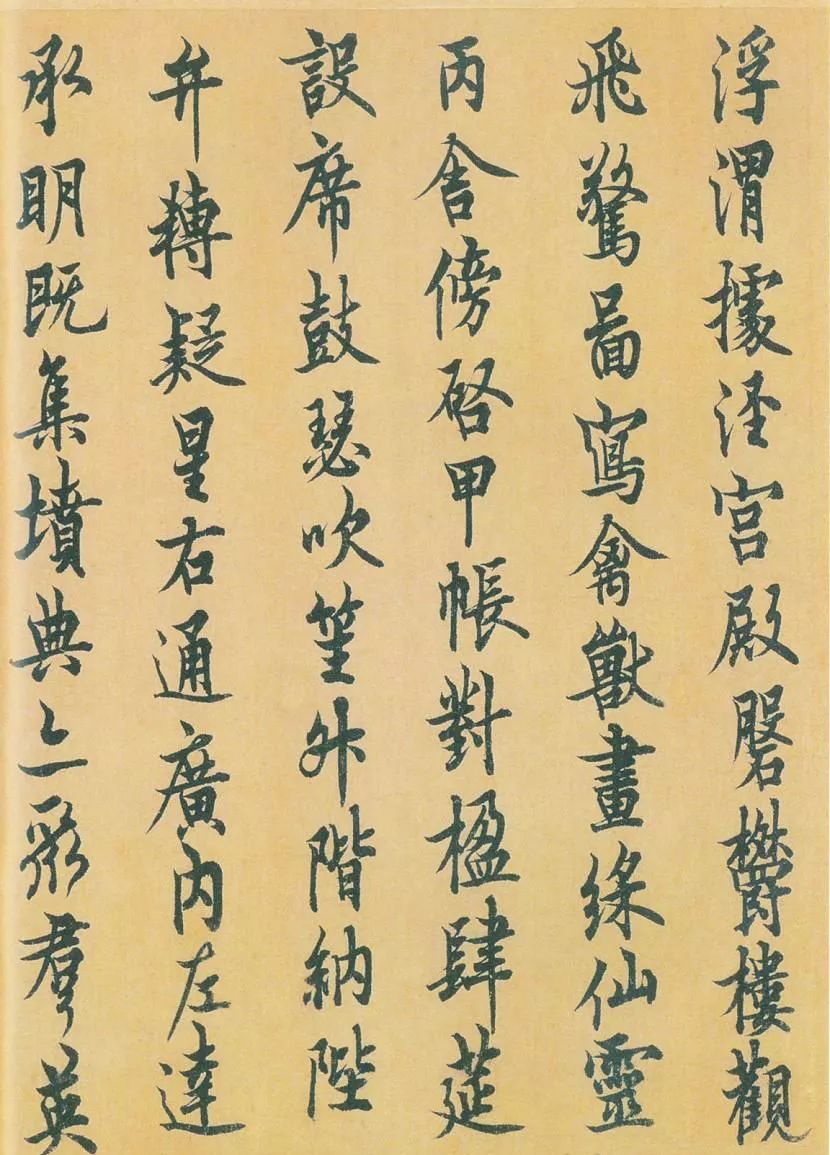 浮渭據涇宮殿磐欝樓觀
飛驚啚寫禽獸畫綵仙靈
丙舍傍啓甲帳對楹肆莚
設席鼓瑟吹笙外階納陛
弁轉疑星右通廣內左達
承明既集墳典亦聚群英